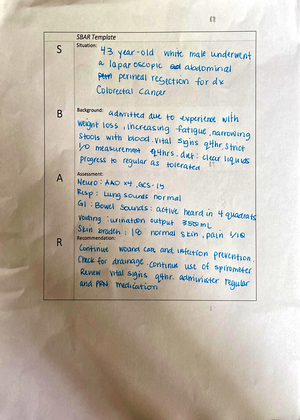 SBAR Template
S
Situation:
43 year-old white male underwent
a laparoscopic abdominal
perineal resection for dx
Colorectal cancer
B
Background: admitted due to experience with
weight loss, increasing fatigue, narrowing
stools with blood. Vital signs q4hr. Strict
I/O measurement q4hrs. diet: clear liquids
progress to regular as tolerated
A
Assessment:
Neuro: AAO x4, GCS-15
Resp: Lung sounds normal
GI: Bowel sounds: active heard in 4 quadrants
Voiding: urination output 355mL
Skin braden: 18 normal skin, pain 1/10
R
Recommendation:
Continue wound care and infection prevention.
Check for drainage. continue use of spirometer
Review vital signs q4hr. administer regular
and PRN medication